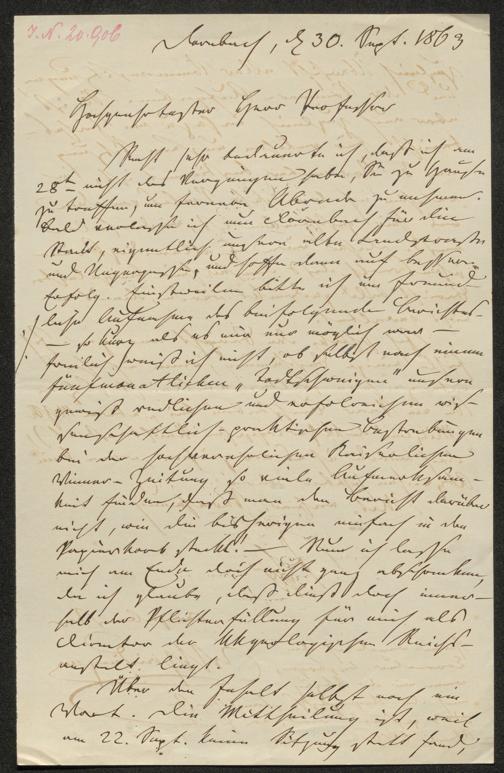 I. N. 20.906
Dornbach, d 30. Sept. 1863
Hochgeehrtester Herr Professor
Recht sehr bedauerte ich, daß ich am
28t nicht das Vergnügen hatte, Sie zu Hause
zu treffen, um ferneren Abrede zu nehmen.
Bald verlasse ich nun Dornbach für die
Stadt, eigentlich unsere alte Landstraße
und Ungargasse, und hoffe dann auf bessern
Erfolg. Einstweilen bitte ich um freund
liche Aufnahme des beifolgenden Berichtes
— so kurz als es mir nur möglich war —
freilich weiß ich nicht, ob selbst nach einem
fünfmonatlichen „Todtschweigen" unsere
gewiß redlichen und erfolgreichen wis
senschaftlich-praktischen Bestrebungen
bei der hochverehrlichen Kaiserlichen
Wiener-Zeitung so viele Aufmerksam-
keit finden, daß man den Bericht darüber
nicht, wie die bisherigen einfach in den
Papierkorb steckt! — Nun ich lasse
mich am Ende doch nicht ganz abschrecken,
da ich glaube, daß dieß doch inner-
halb der Pflichterfüllung für mich als
Director der k k geologischen Reichs-
anstalt liegt.
Über den Inhalt selbst noch ein
Wort. Die Mittheilung ist, weil
am 22. Sept. keine Sitzung statt fand,